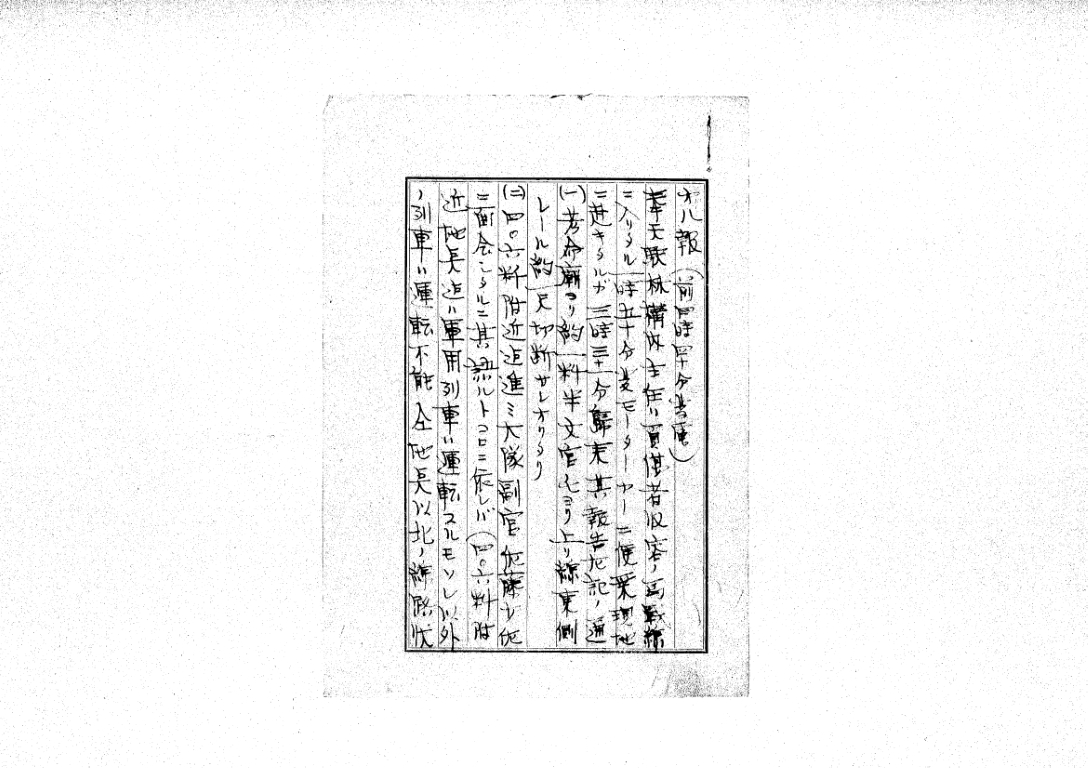 オ八報(前四時四十分奉廣)
奉天駅林構内主任ハ負傷者収容ノ為戦線
ニ入リタル一時五十分発モーターカーニ便乗現地
ニ赴キタルガ三時三十分歸来其報告左記ノ通
(一)芳命廟ヨリ約一粁半文官屯ヨリ上リ線東側
レール約一尺切断サレオリタリ
(二)四〇六粁附近迄進ミ大隊副官佐藤少佐
ニ面会シタルニ其語ルトコロニ依レバ(四〇六粁附
近)地長迄ハ軍用列車ハ運転スルモソレ以外
ノ列車ハ運転不能仝地長以北ノ線路状